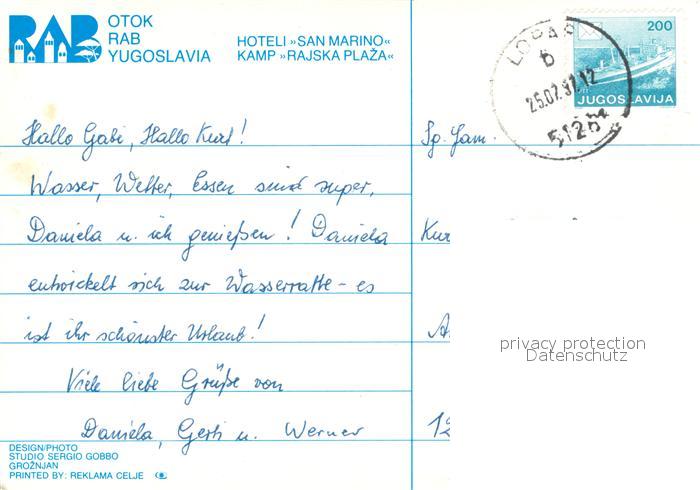 RAB OTOK
RAB
YUGOSLAVIA
HOTELI »SAN MARINO«
KAMP »RAJSKA PLAŽA«
200
JUGOSLAVIJA
LOPAR
b
25.07.87.12
Hallo Gabi, Hallo Kurt!
Wasser, Wetter, Essen sind super,
Daniela u. ich genießen! Daniela
entwickelt sich zur Wasserratte - es
ist ihr schönster Urlaub!
Viele liebe Grüße von
Daniela, Gerti u. Werner
Fam.
Kur
A
12
privacy protection
Datenschutz
DESIGN/PHOTO
STUDIO SERGIO GOBBO
GROŽNJAN
PRINTED BY: REKLAMA CELJE